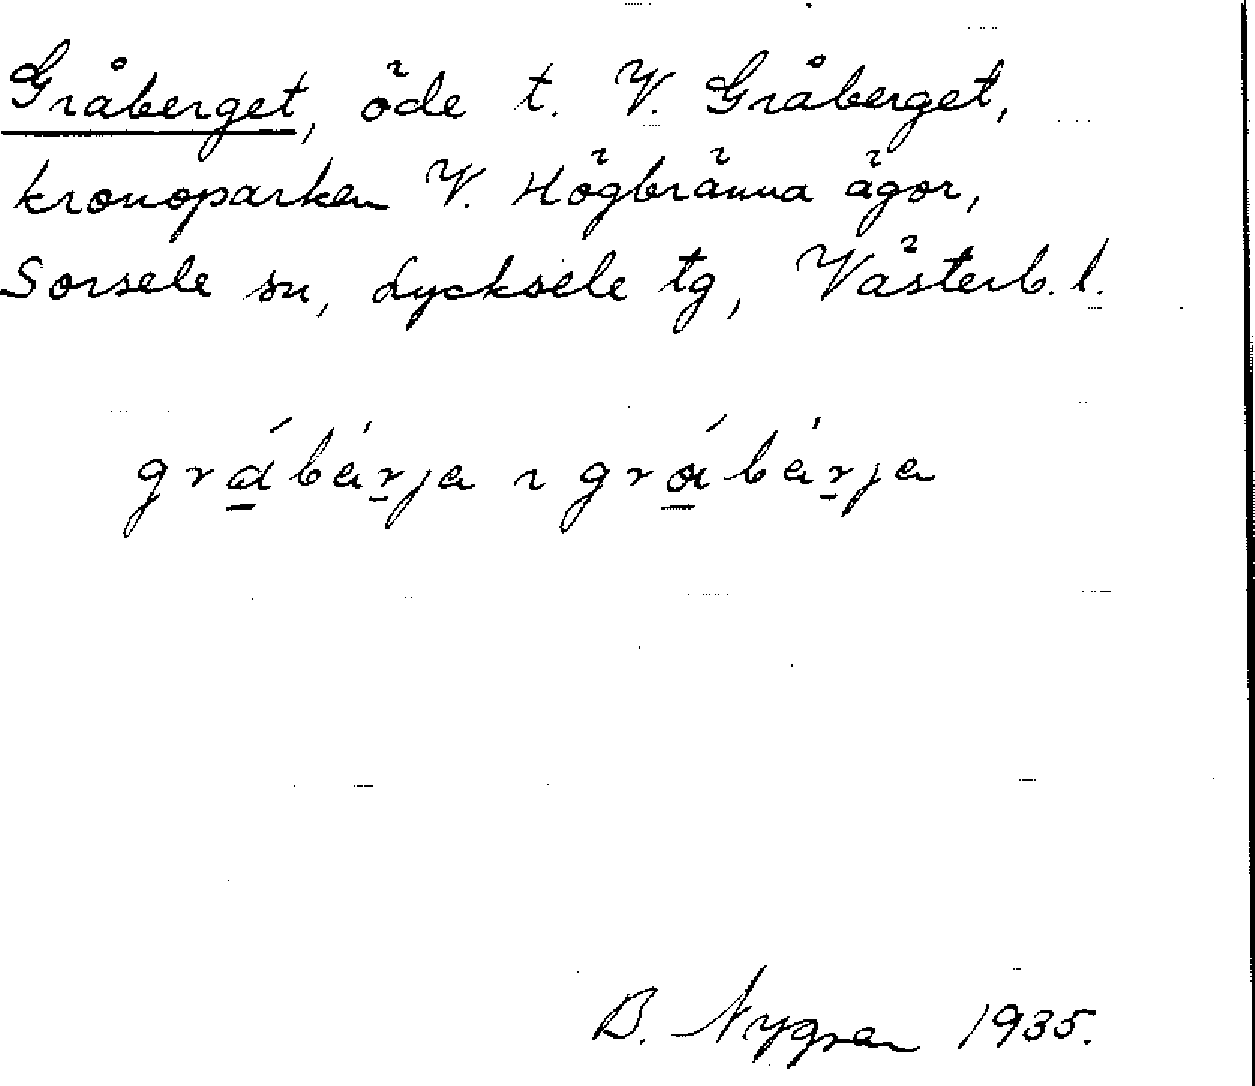 Gråberget, öde t. V. Gråberget,
kronoparken V. Högbränna ägor,
Sorsele sn, Lycksele tg, Västerb. l.
gra̲´bä́r̲ja ~ grå̲´bä́r̲ja
B. Nygren 1935.